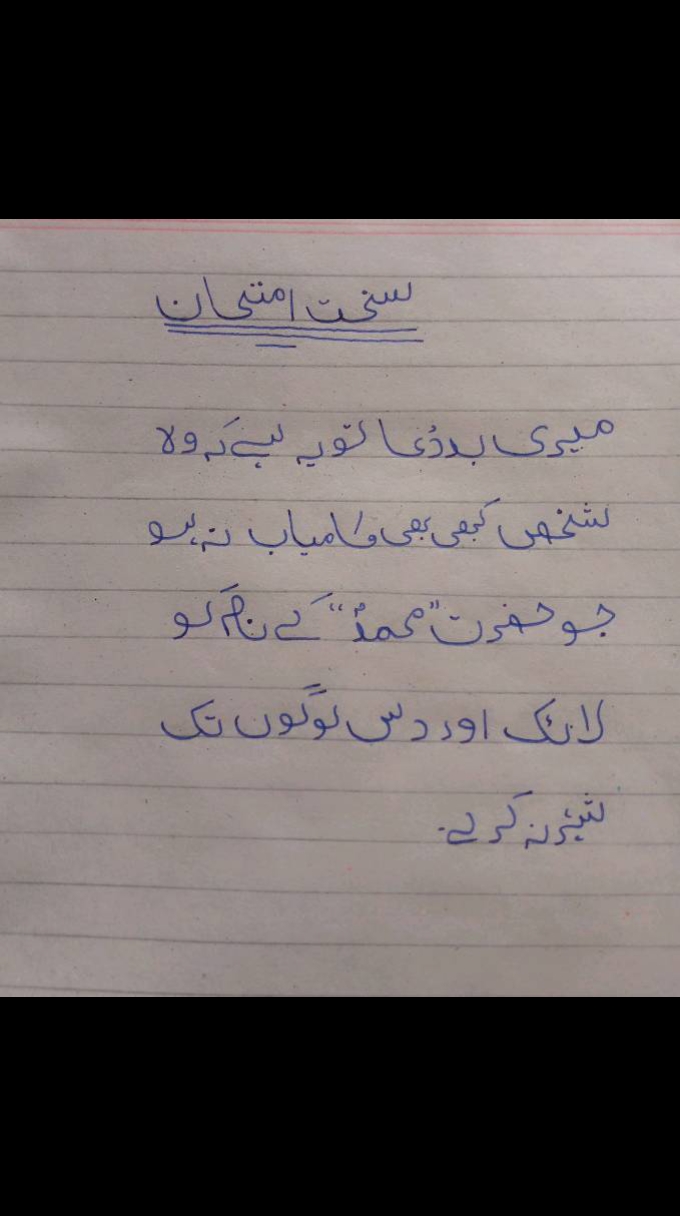 سخت امتحان
میری بددُعا تو یہ ہے کہ وہ
شخص کبھی بھی کامیاب نہ ہو
جو حضرت "محمدؐ" کے نام کو
لائک اور دس لوگوں تک
شیئر نہ کرے.